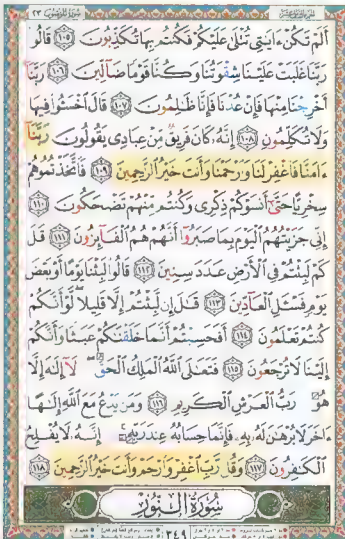 سورة المؤمنون ٢٣
أَلَمْ تَكُنْ ءَايَـٰتِى تُتْلَىٰ عَلَيْكُمْ فَكُنتُم بِهَا تُكَذِّبُونَ ١٠٥ قَالُوا۟
رَبَّنَا غَلَبَتْ عَلَيْنَا شِقْوَتُنَا وَكُنَّا قَوْمًا ضَآلِّينَ ١٠٦ رَبَّنَآ
أَخْرِجْنَا مِنْهَا فَإِنْ عُدْنَا فَإِنَّا ظَـٰلِمُونَ ١٠٧ قَالَ ٱخْسَـُٔوا۟ فِيهَا
وَلَا تُكَلِّمُونِ ١٠٨ إِنَّهُۥ كَانَ فَرِيقٌ مِّنْ عِبَادِى يَقُولُونَ رَبَّنَآ
ءَامَنَّا فَٱغْفِرْ لَنَا وَٱرْحَمْنَا وَأَنتَ خَيْرُ ٱلرَّٰحِمِينَ ١٠٩ فَٱتَّخَذْتُمُوهُمْ
سِخْرِيًّا حَتَّىٰٓ أَنسَوْكُمْ ذِكْرِى وَكُنتُم مِّنْهُمْ تَضْحَكُونَ ١١٠
إِنِّى جَزَيْتُهُمُ ٱلْيَوْمَ بِمَا صَبَرُوٓا۟ أَنَّهُمْ هُمُ ٱلْفَآئِزُونَ ١١١ قَـٰلَ
كَمْ لَبِثْتُمْ فِى ٱلْأَرْضِ عَدَدَ سِنِينَ ١١٢ قَالُوا۟ لَبِثْنَا يَوْمًا أَوْ بَعْضَ
يَوْمٍ فَسْـَٔلِ ٱلْعَآدِّينَ ١١٣ قَـٰلَ إِن لَّبِثْتُمْ إِلَّا قَلِيلًا لَّوْ أَنَّكُمْ
كُنتُمْ تَعْلَمُونَ ١١٤ أَفَحَسِبْتُمْ أَنَّمَا خَلَقْنَـٰكُمْ عَبَثًا وَأَنَّكُمْ
إِلَيْنَا لَا تُرْجَعُونَ ١١٥ فَتَعَـٰلَى ٱللَّهُ ٱلْمَلِكُ ٱلْحَقُّ لَآ إِلَـٰهَ إِلَّا
هُوَ رَبُّ ٱلْعَرْشِ ٱلْكَرِيمِ ١١٦ وَمَن يَدْعُ مَعَ ٱللَّهِ إِلَـٰهًا
ءَاخَرَ لَا بُرْهَـٰنَ لَهُۥ بِهِۦ فَإِنَّمَا حِسَابُهُۥ عِندَ رَبِّهِۦٓ إِنَّهُۥ لَا يُفْلِحُ
ٱلْكَـٰفِرُونَ ١١٧ وَقُل رَّبِّ ٱغْفِرْ وَٱرْحَمْ وَأَنتَ خَيْرُ ٱلرَّٰحِمِينَ ١١٨
سُورَةُ ٱلنُّورِ
٣٤٩